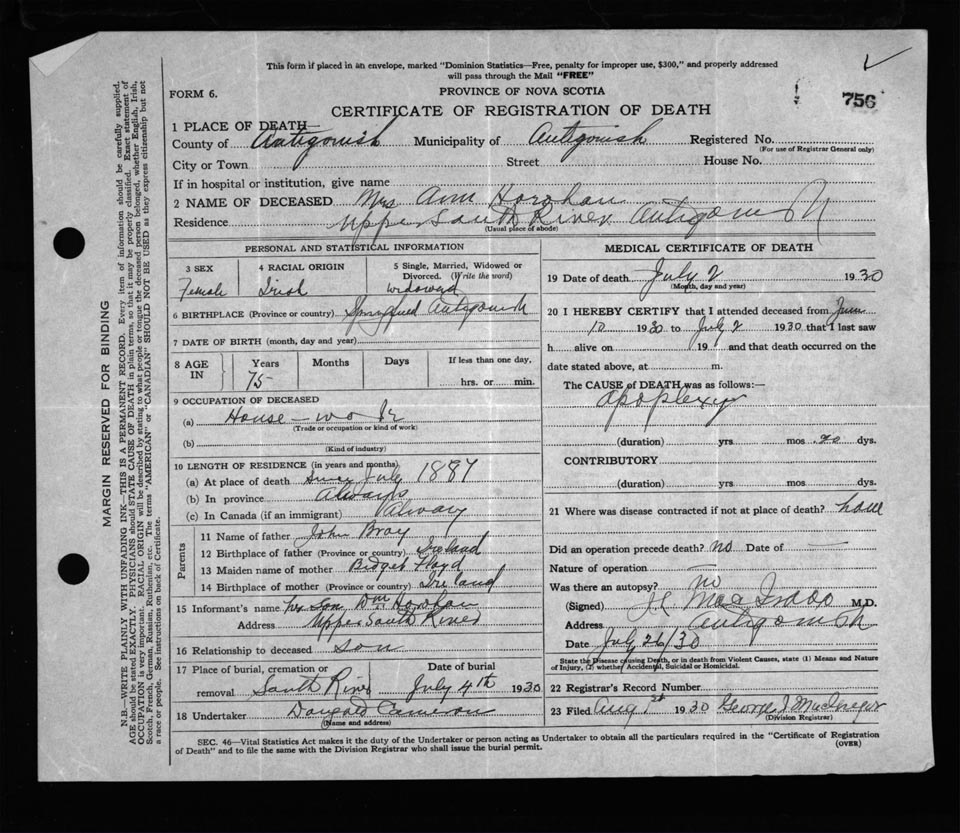 This form if placed in an envelope, marked "Dominion Statistics—Free, penalty for improper use, $300," and properly addressed
will pass through the Mail "FREE"
FORM 6.
PROVINCE OF NOVA SCOTIA
756
CERTIFICATE OF REGISTRATION OF DEATH
1 PLACE OF DEATH—
County of Antigonish Municipality of Antigonish Registered No.
(For use of Registrar General only)
City or Town Street House No.
If in hospital or institution, give name
2 NAME OF DECEASED Mrs Ann Horohan
Residence Upper South River Antigonish
(Usual place of abode)
PERSONAL AND STATISTICAL INFORMATION
3 SEX 4 RACIAL ORIGIN 5 Single, Married, Widowed or
Divorced. (Write the word)
Female Irish widowed
6 BIRTHPLACE (Province or country) Antigonish
7 DATE OF BIRTH (month, day and year)
8 AGE IN Years Months Days If less than one day,
75 hrs. or min.
9 OCCUPATION OF DECEASED
(a) House-work
(Trade or occupation or kind of work)
(b)
(Kind of industry)
10 LENGTH OF RESIDENCE (in years and months)
(a) At place of death Since July 1887
(b) In province Always
(c) In Canada (if an immigrant) Alway
Parents
11 Name of father John Bray
12 Birthplace of father (Province or country) Ireland
13 Maiden name of mother Bidget Floyd
14 Birthplace of mother (Province or country) Ireland
15 Informant's name her Son Wm Horohan
Address Upper South River
16 Relationship to deceased Son
17 Place of burial, cremation or Date of burial
removal South River July 4th 1930
18 Undertaker Dougald Cameron
(Name and address)
MEDICAL CERTIFICATE OF DEATH
19 Date of death July 2 1930
(Month, day and year)
20 I HEREBY CERTIFY that I attended deceased from June
10 1930 to July 2 1930 that I last saw
h alive on 19 and that death occurred on the
date stated above, at m.
The CAUSE of DEATH was as follows:—
Apoplexy
(duration) yrs mos 20 dys.
CONTRIBUTORY
(duration) yrs. mos. dys.
21 Where was disease contracted if not at place of death? home
Did an operation precede death? No Date of —
Nature of operation —
Was there an autopsy? no
(Signed) M.D.
Address Antigonish
Date July 26/30
State the Disease causing Death, or in death from Violent Causes, state (1) Means and Nature
of Injury, (2) whether Accidental, Suicidal or Homicidal.
22 Registrar's Record Number
23 Filed Aug 1st 1930 George J MacGregor
(Division Registrar)
SEC. 46—Vital Statistics Act makes it the duty of the Undertaker or person acting as Undertaker to obtain all the particulars required in the "Certificate of Registration
of Death" and to file the same with the Division Registrar who shall issue the burial permit.
(OVER)
MARGIN RESERVED FOR BINDING
N.B.—WRITE PLAINLY WITH UNFADING INK—THIS IS A PERMANENT RECORD. Every item of information should be carefully supplied.
AGE should be stated EXACTLY. PHYSICIANS should STATE CAUSE OF DEATH in plain terms, so that it may be properly classified. Exact statement of
OCCUPATION is very important. RACIAL ORIGIN will be described by stating to what people or tongue the deceased person belonged, whether English, Irish,
Scotch, French, German, Russian, Ruthenian, etc. The terms "AMERICAN" or "CANADIAN" SHOULD NOT BE USED as they express citizenship but not
a race or people. See instructions on back of Certificate.